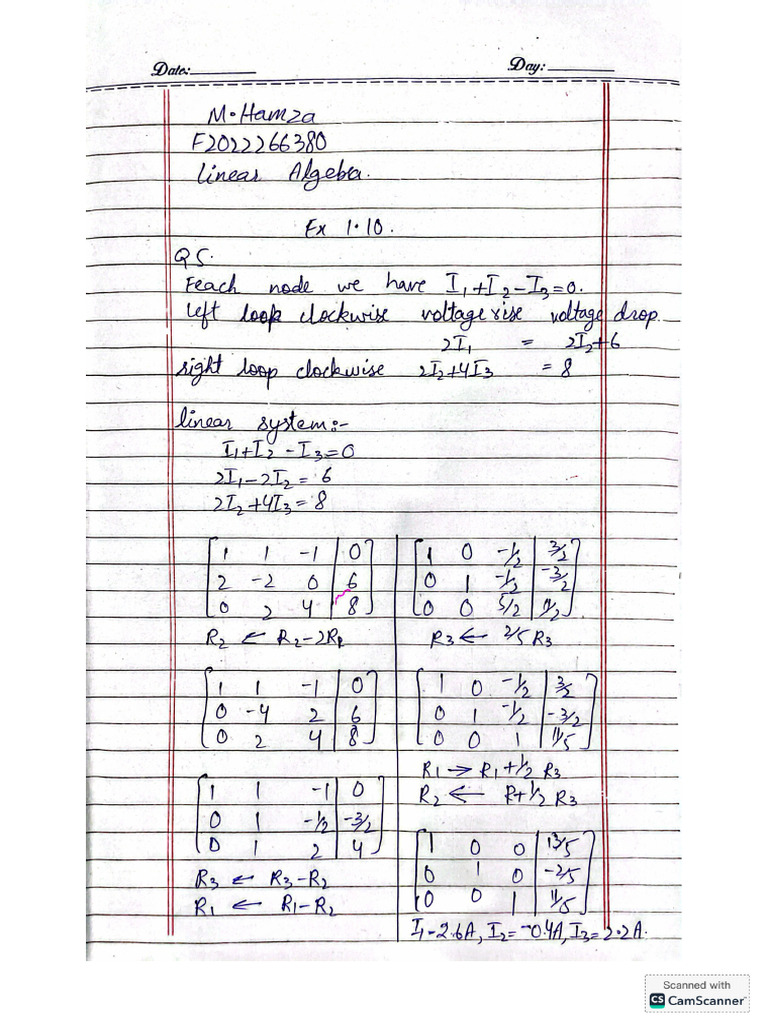 Date:________ Day:________
M·Hamza
F2022266380
Linear Algebra.
Ex 1·10.
Q5.
Feach node we have I₁+I₂-I₃=0.
left loop clockwise voltage rise voltage drop.
2I₁ = 2I₂+6
right loop clockwise 2I₂+4I₃ = 8
linear system:-
I₁+I₂-I₃=0
2I₁-2I₂=6
2I₂+4I₃=8
1 1 -1 | 0
2 -2 0 | 6
0 2 4 | 8
R₂ ← R₂-2R₁
1 1 -1 | 0
0 -4 2 | 6
0 2 4 | 8
1 1 -1 | 0
0 1 -1/2 | -3/2
0 1 2 | 4
R₃ ← R₃-R₂
R₁ ← R₁-R₂
1 0 -1/2 | 3/2
0 1 -1/2 | -3/2
0 0 5/2 | 11/2
R₃ ← 2/5 R₃
1 0 -1/2 | 3/2
0 1 -1/2 | -3/2
0 0 1 | 11/5
R₁ → R₁+1/2 R₃
R₂ ← R+1/2 R₃
1 0 0 | 13/5
0 1 0 | -2/5
0 0 1 | 11/5
I₁-2.6A, I₂=-0.4A, I₃=2.2A.
Scanned with
CS CamScanner